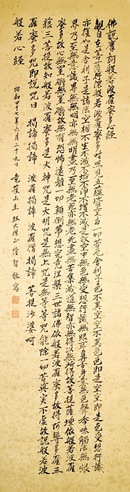 佛說摩訶般若波羅蜜多心經
觀自在菩薩行深般若波羅蜜多時照見五蘊皆空度一切苦厄舍利子色不異空空不異色色即是空空即是色受想行識
亦復如是舍利子是諸法空相不生不滅不垢不淨不增不減是故空中無色無受想行識無眼耳鼻舌身意無色聲香味觸法無眼
界乃至無意識界無無明亦無無明盡乃至無老死亦無老死盡無苦集滅道無智亦無得以無所得故菩提薩埵依般若波
羅蜜多故心無罣礙無罣礙故無有恐怖遠離一切顛倒夢想究竟涅槃三世諸佛依般若波羅蜜多故得阿耨多羅三
藐三菩提故知般若波羅蜜多是大神咒是大明咒是無上咒是無等等咒能除一切苦真實不虛故說般若波
羅蜜多咒即說咒曰 揭諦 揭諦 波羅揭諦 波羅僧揭諦 菩提沙婆訶
般若心經 昭和四十七年六月二十九日